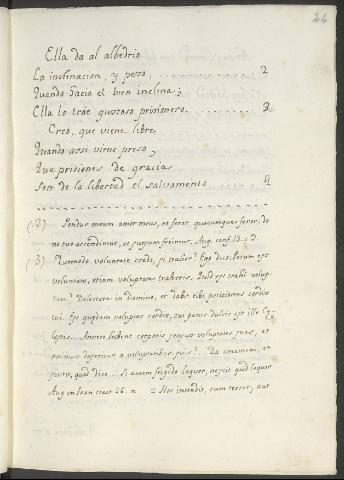 24
Ella da al albedrio
La inclinacion, y pesso, ........ 2
Quando hacia el bien inclina;
Ella lo tráe gustoso prisionero. ........ 3
Creo, que viene libre
Quando assi viene preso,
Que prisiones de gracia
Son de la libertad el salvamento ........ 4
(2) Pondus meum amor meus, eo feror, quocumque feror: do
no tuo accendimur, et sursum ferimur. Aug. conf. 13. c. 9.
(3) Quomodo voluntate credo, si trahor? Ego dico: Parum est
voluntate, etiam voluptate traheris. Quid est trahi volup
tate? Delectare in Domino, et dabit tibi petitiones cordis
tui. Est quædam voluptas cordis, cui panis dulcis est ille Cæ
lestis... An vero habent corporis sensus voluptates suas, et
animus deseritur a voluptatibus suis?.. Da amantem, et
sentit, quod dico... Si autem frigido loquor, nescit quid loquor
Aug. in Joan. tract. 26. n = Hoc incendit, cum terret, aut